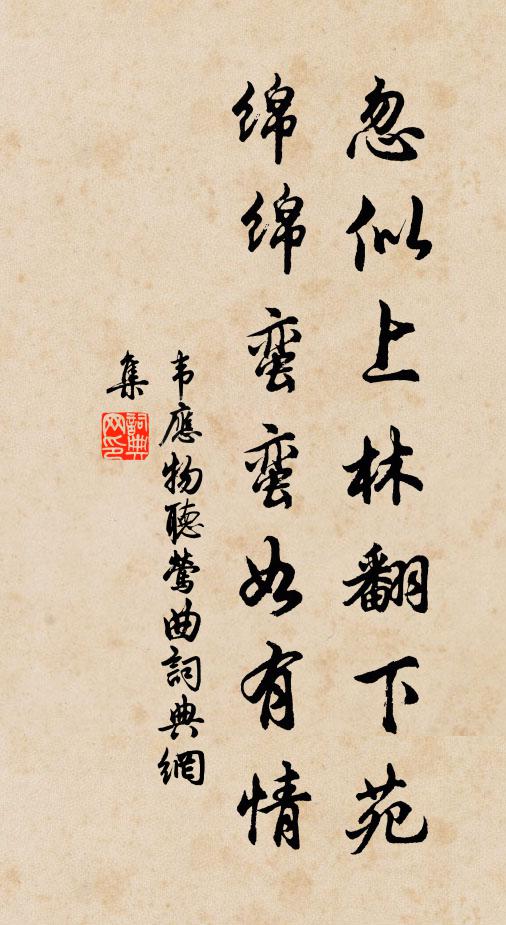 忽似上林翻下苑
绵绵蛮蛮如有情
韦應物聽鶯曲詞典網
集
詞典
网印